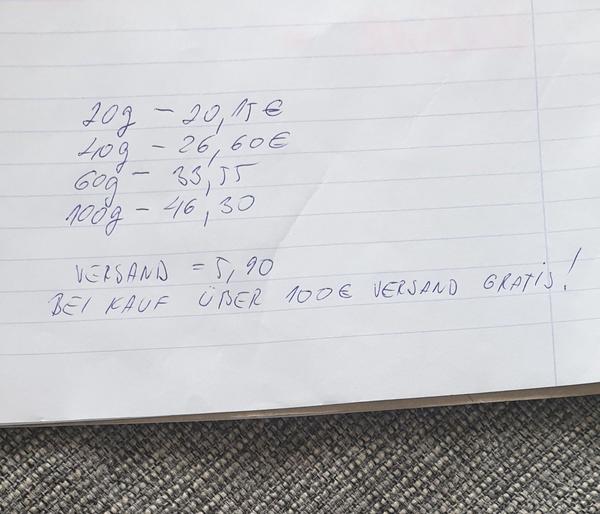 20g - 20,15€
40g - 26,60€
60g - 33,55
100g - 46,30
VERSAND = 5,90
BEI KAUF ÜBER 100€ VERSAND GRATIS!